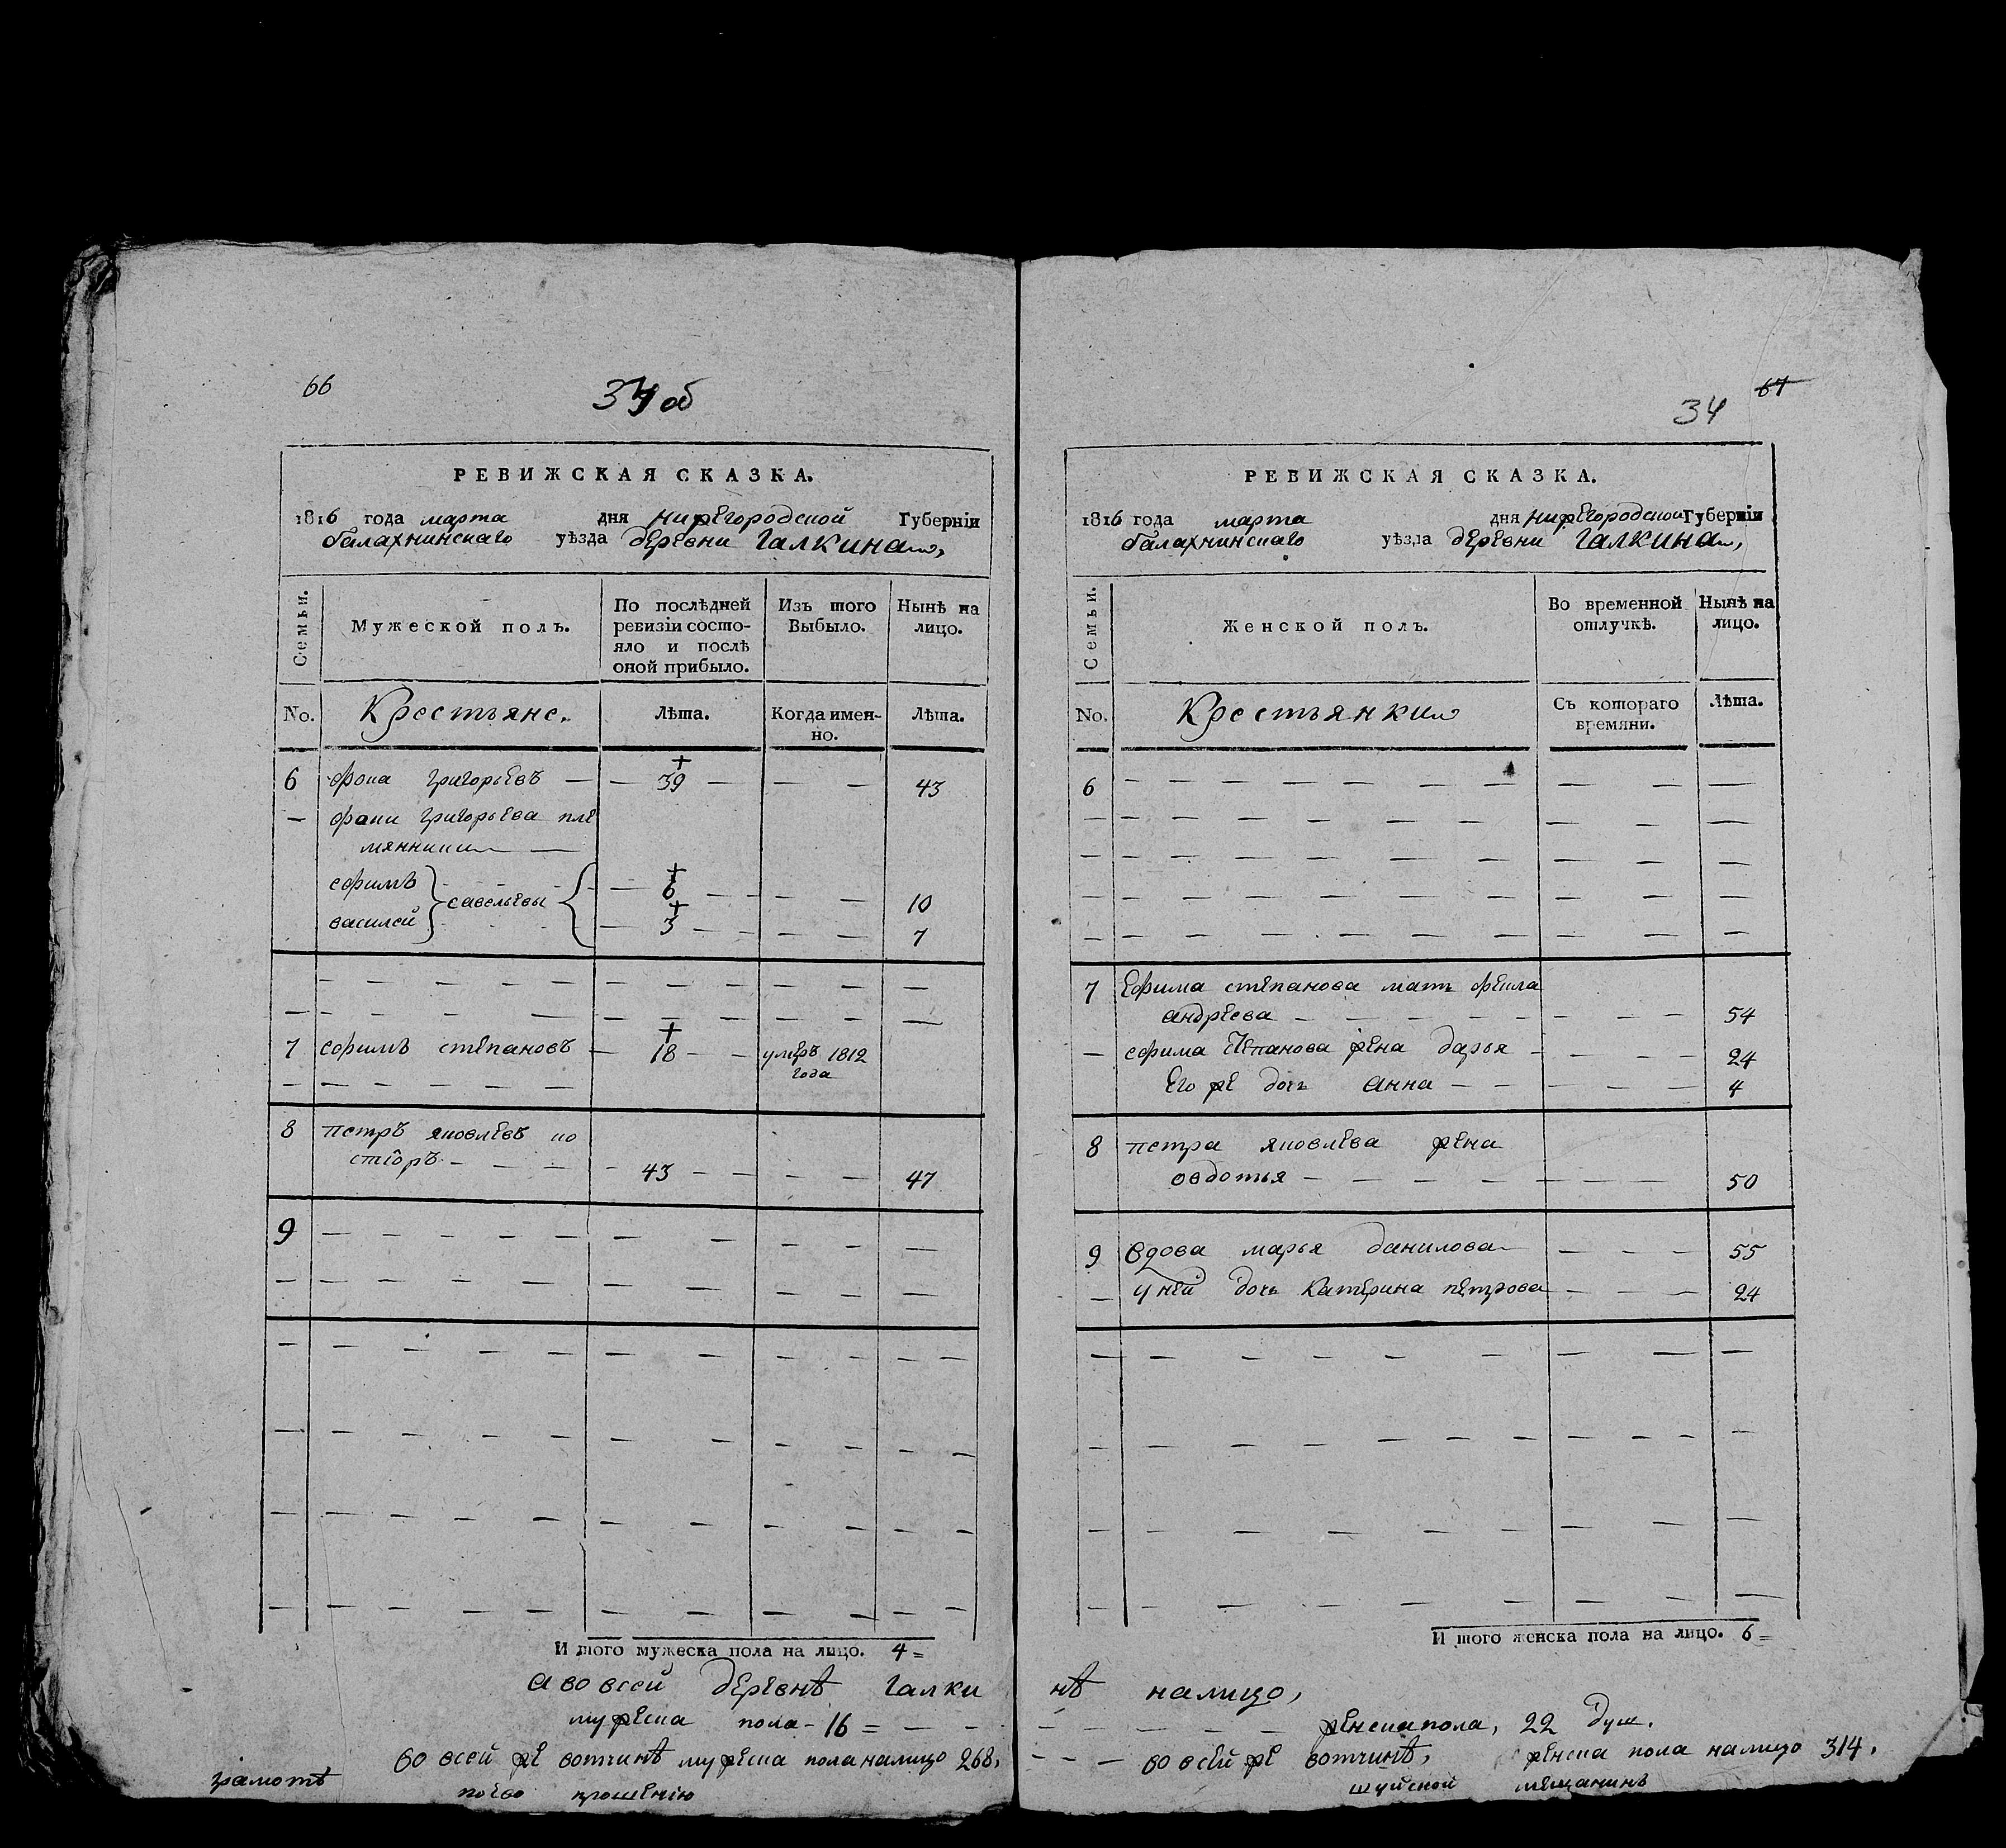 66
34 об
РЕВИЖСКАЯ СКАЗКА.
1816 года марта дня нижегородской Губернiи
балахнинскаго уѣзда деревни Галкина,
Семьи.
Мужеской полъ.
По послѣдней ревизiи состо-
яло и послѣ
оной прибыло.
Изъ того
Выбыло.
Нынѣ на
лицо.
No.
Крестьяне.
Лѣта.
Когда имен-
но.
Лѣта.
6 фока григорьевъ — 39 — 43
— фоки григорьева пле
мянники
ефимъ 6 10
савельевы
василей 3 7
7 ефимъ степановъ — 18 — умеръ 1812
года
8 петръ яковлевъ ко
стiоръ — 43 — 47
9
И того мужеска пола на лицо. 4=
а во всей деревнѣ галки
мужеска пола - 16 =
во всей же вотчинѣ мужеска пола налицо 268,
грамотѣ
поево прошенiю
34 67
РЕВИЖСКАЯ СКАЗКА.
1816 года марта дня нижегородской Губернiи
балахнинскаго уѣзда деревни Галкина,
Семьи.
Женской полъ.
Во временной
отлучкѣ.
Нынѣ на
лицо.
No.
Крестьянки
Съ котораго
времяни.
Лѣта.
6
7 Ефима степанова мать фекла
андреева — 54
— ефима степанова жена дарья — 24
Его же дочь анна — 4
8 петра яковлева жена
овдотья — 50
9 вдова марья данилова — 55
— у ней дочь катерина петрова — 24
И того женска пола на лицо. 6=
нѣ налицо,
женска пола, 22 душ.
во всей же вотчинѣ, женска пола налицо 314,
шуйской мещанинъ